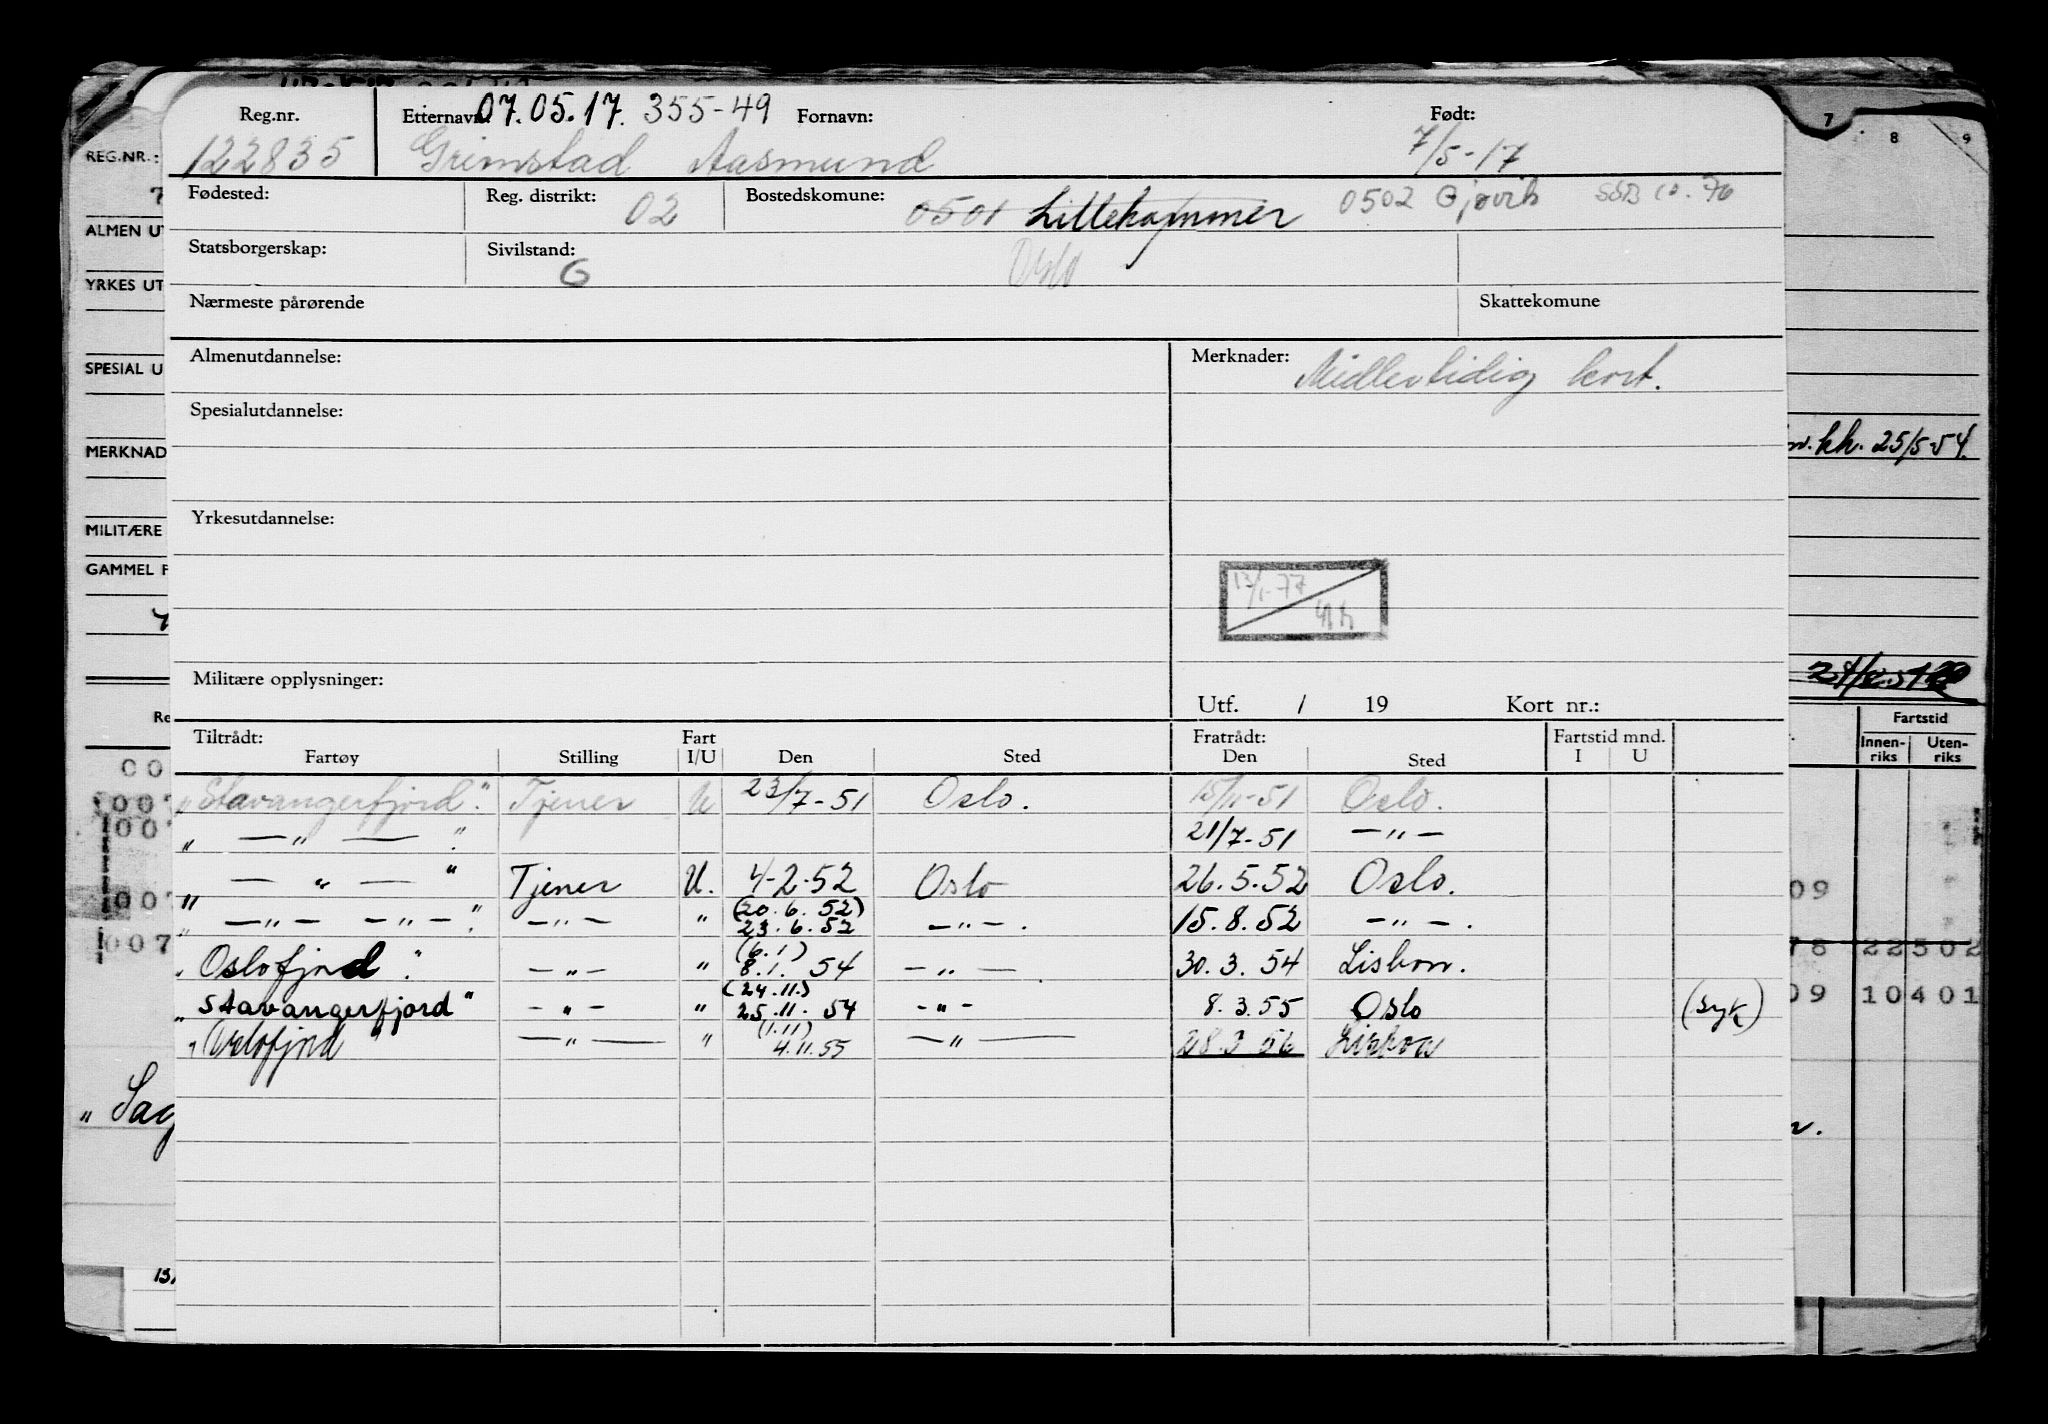 Reg.nr. Etternavn: 07.05.17. 355-49 Fornavn: Født:
122835 Grimstad Aasmund 7/5-17
Fødested: Reg. distrikt: 02 Bostedskomune: 0501 Lillehammer 0502 Gjøvik
Statsborgerskap: Sivilstand: G Oslo
Nærmeste pårørende Skattekomune
Almenutdannelse: Merknader: Midlertidig kort.
Spesialutdannelse:
Yrkesutdannelse:
Militære opplysninger:
Utf. / 19 Kort nr.:
Tiltrådt: Fart Fratrådt: Fartstid mnd.
Fartøy Stilling I/U Den Sted Den Sted I U
"Stavangerfjord". Tjener U 23/7-51 Oslo. 15/11-51 Oslo.
" — " — ". 21/7-51 — " —
" — " — " Tjener U. 4-2-52 Oslo 26.5.52 Oslo.
(20.6.52)
" — " — — " — ". — " — " 23.6.52 — " — . 15.8.52 — " — .
(6.1)
"Oslofjord". — " — " 8.1. 54 — " — 30.3.54 Lisbon.
(24.11.)
"Stavangerfjord" — " — " 25.11.54 — " — 8.3.55 Oslo (syk)
(1.11)
"Oslofjord" — " — " 4.11.55 — " — 28.3 56 Lisboa
REG.NR.:
ALMEN UT
YRKES UT
SPESIAL U
MERKNAD
MILITÆRE
GAMMEL F
Re
00
007
007
007
007
" Sag
7 8 9
kk. 25/5-54.
Fartstid
Innen- Uten-
riks riks
09
78 22502
09 10401